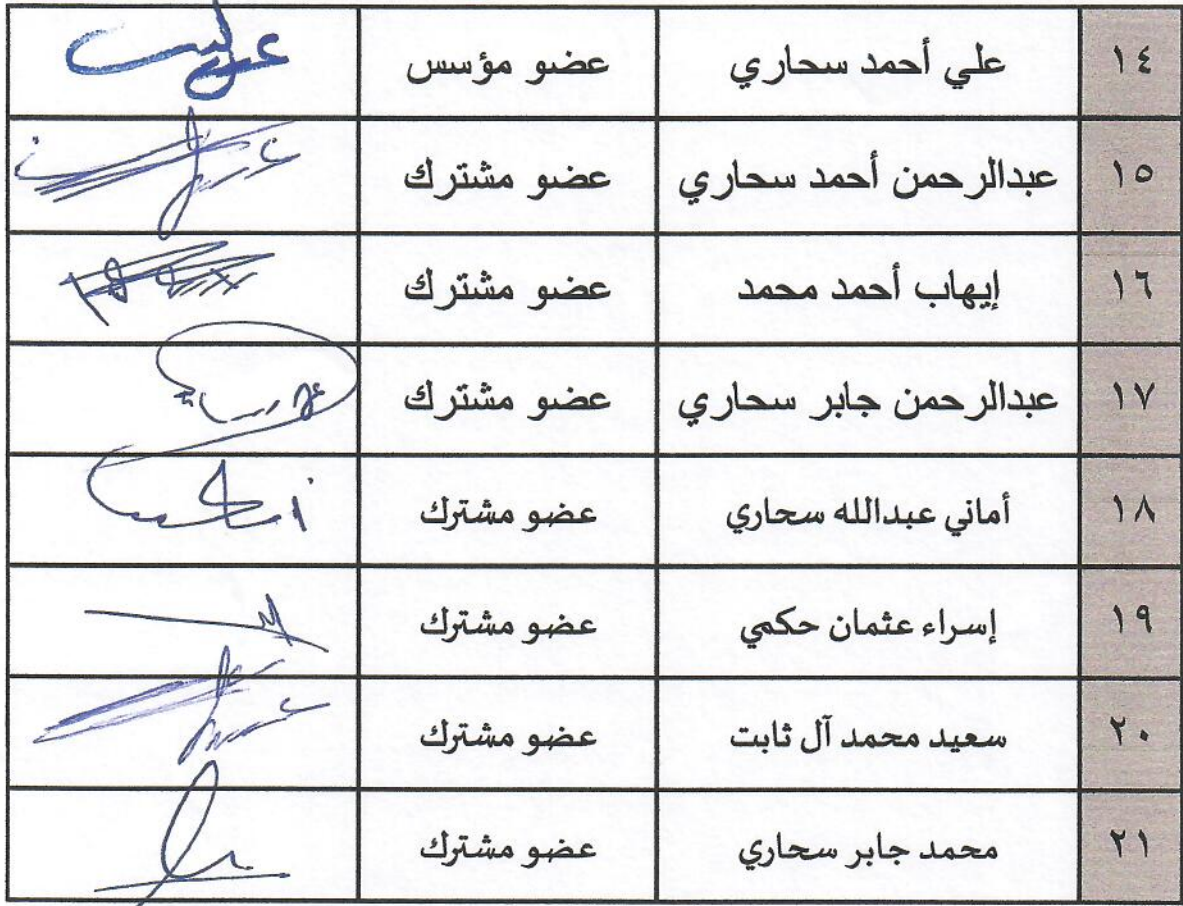 ١٤ علي أحمد سحاري عضو مؤسس
١٥ عبدالرحمن أحمد سحاري عضو مشترك
١٦ إيهاب أحمد محمد عضو مشترك
١٧ عبدالرحمن جابر سحاري عضو مشترك
١٨ أماني عبدالله سحاري عضو مشترك
١٩ إسراء عثمان حكمي عضو مشترك
٢٠ سعيد محمد آل ثابت عضو مشترك
٢١ محمد جابر سحاري عضو مشترك